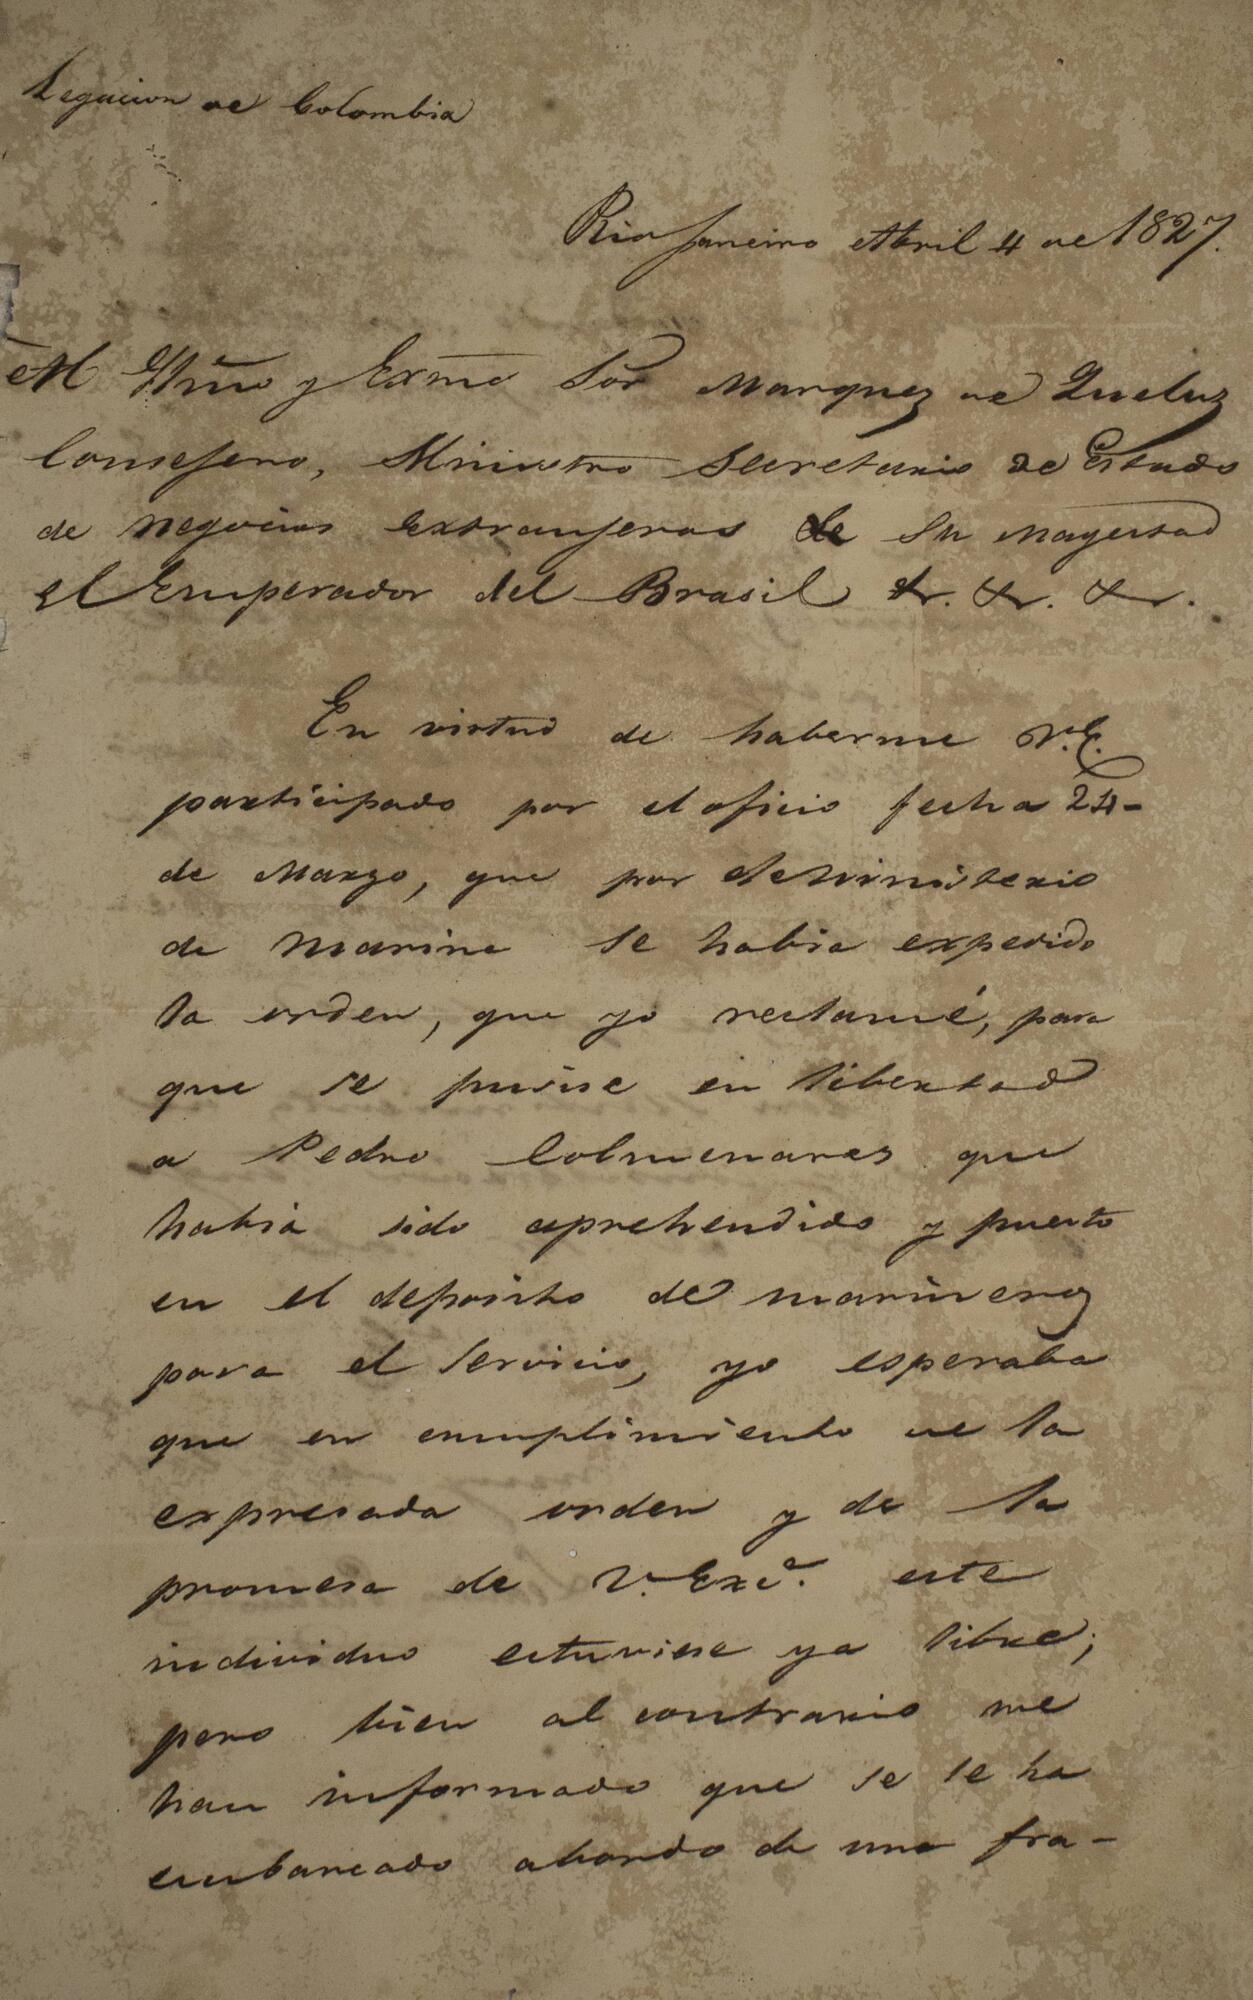 Legacion de Colombia
Rio Janeiro Abril 4 de 1827.
Al Yllmo y Exmo Sõr Marquez de Queluz
Consejero, Ministro Secretario de Estado
de negocios extranjeros de Su Magestad
el Emperador del Brasil &r. &r. &r.
En virtud de haberme V.E.
participado por el oficio fecha 24-
de Marzo, que por el Ministerio
de Marina se habia expedido
la orden, que yo reclamé, para
que se pusiese en libertad
a Pedro Colmenares que
habia sido aprehendido y puesto
en el deposito de marineros
para el servicio, yo esperaba
que en cumplimiento de la
expresada orden y de la
promesa de V. Exca. este
individuo estuviese ya libre;
pero bien al contrario me
han informado que se le ha
embarcado abordo de una fra-